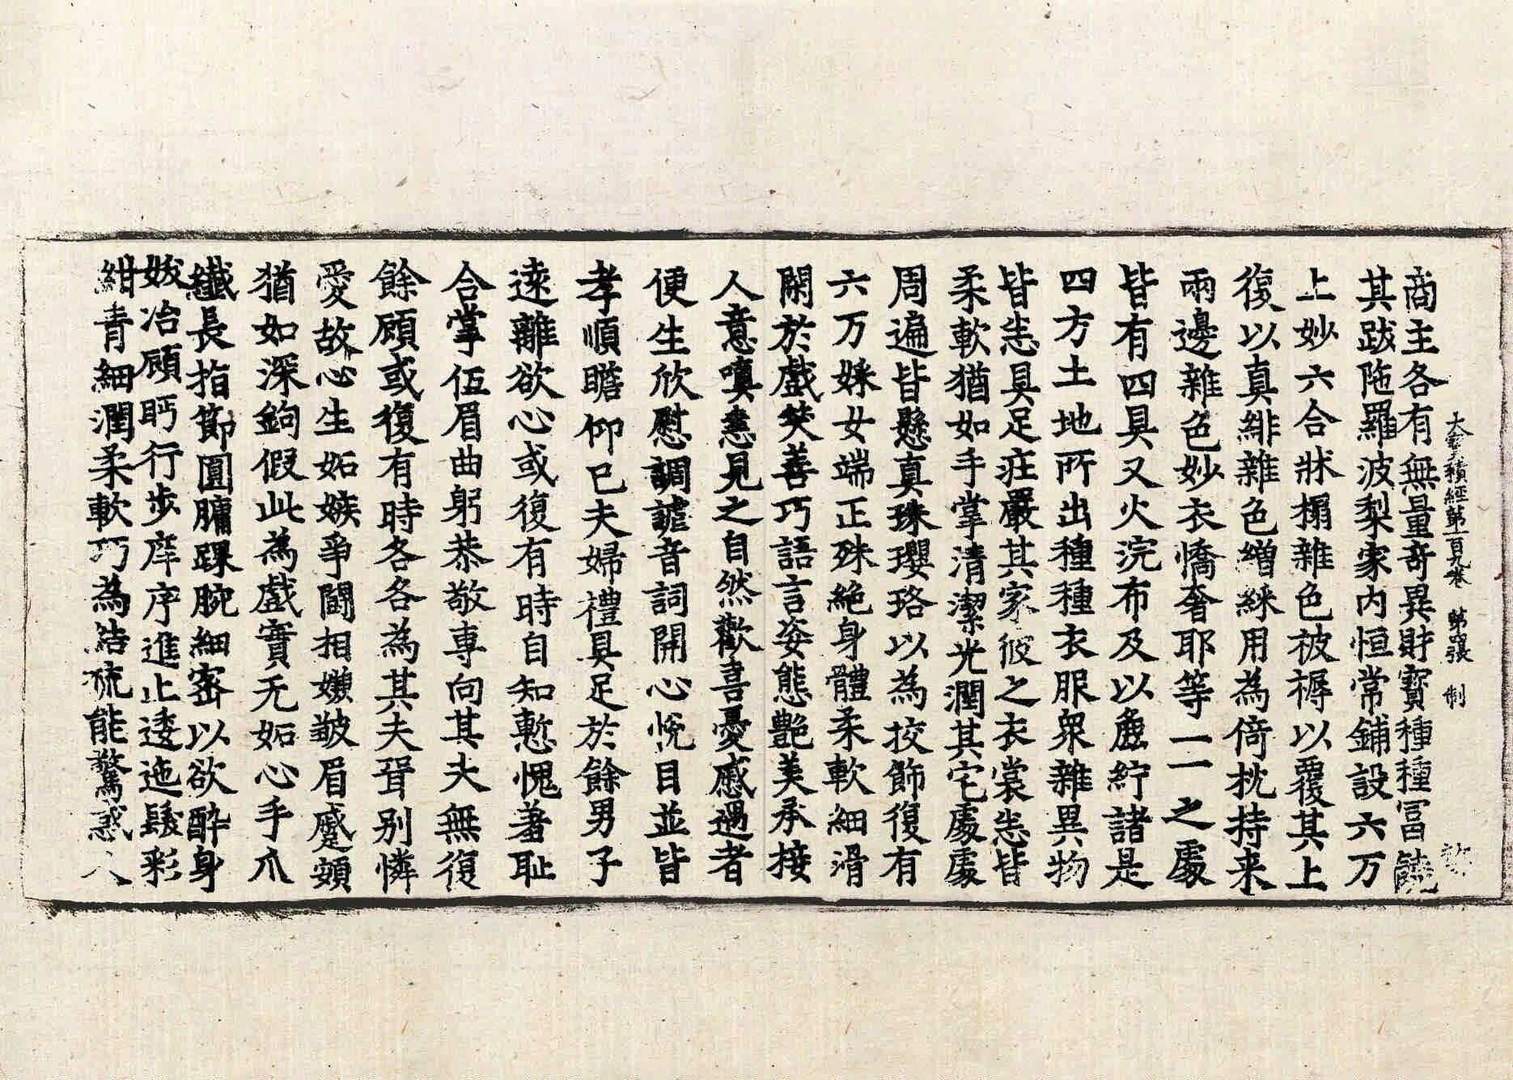 大寶積經第一百九卷 第 張 制
商主各有無量奇異財寶種種冨饒
其跋陁羅波梨家内恒常鋪設六万
上妙六合牀榻雜色被褥以覆其上
復以真緋雜色繒綵用為倚枕持来
兩邊雜色妙衣憍奢耶等一一之處
皆有四具又火浣布及以𤴯紵諸是
四方土地所出種種衣服衆雜異物
皆悉具足莊嚴其家彼之衣裳悉皆
柔軟猶如手掌清潔光潤其宅處處
周遍皆懸真珠瓔珞以為挍飾復有
六万婇女端正殊絶身體柔軟細滑
閑於戲笑善巧語言姿態艶美承接
人意嗔恚見之自然歡喜憂慼過者
便生欣慰調謔音詞開心悅目並皆
孝順瞻仰已夫婦禮具足於餘男子
遠離欲心或復有時自知慙愧著耻
合掌伍眉曲躬恭敬專向其夫無復
餘顧或復有時各各為其夫胥别憐
愛故心生妬嫉爭鬪相嫌皺眉蹙頞
猶如深鉤假此為戲實无妬心手爪
纖長指節圓𦟛踝腕細密以欲酔身
妭冶顧眄行步庠序進止逶迤鬚彩
紺青細潤柔軟巧為結梳能驚惑人